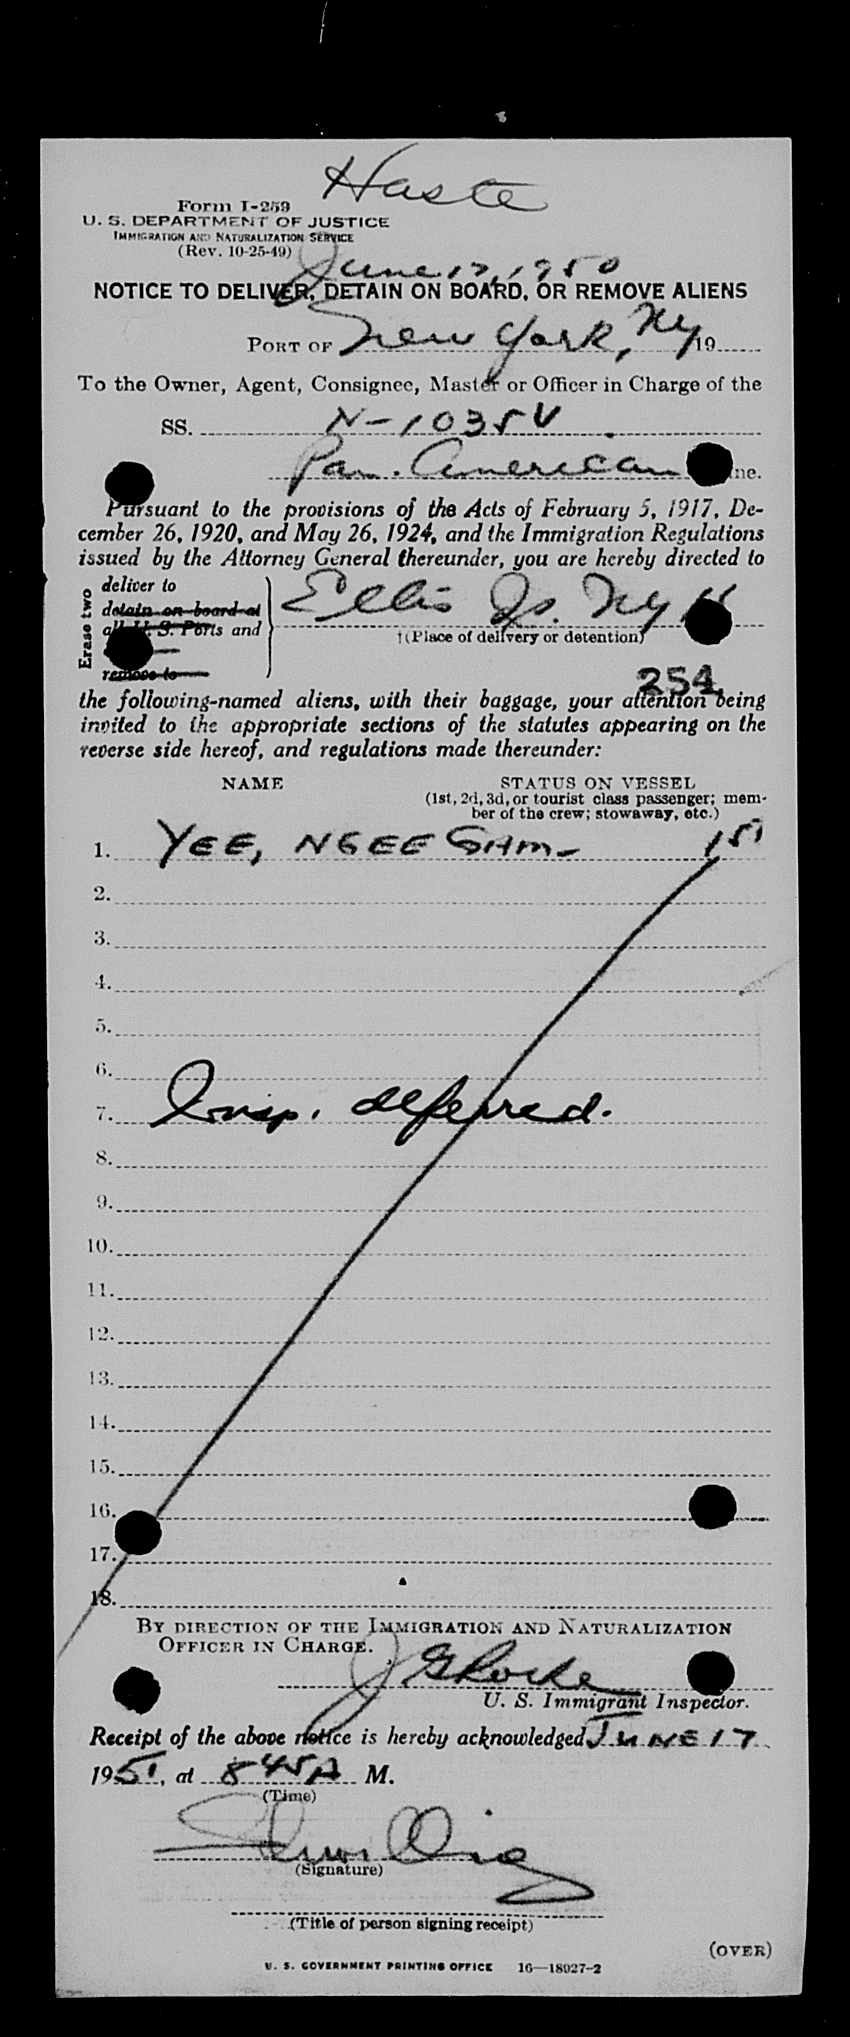 Haste
Form I-259
U. S. DEPARTMENT OF JUSTICE
IMMIGRATION AND NATURALIZATION SERVICE
(Rev. 10-25-49)
June 17, 1950
NOTICE TO DELIVER, DETAIN ON BOARD, OR REMOVE ALIENS
PORT OF New York, NY 19
To the Owner, Agent, Consignee, Master or Officer in Charge of the
SS. N-1035V
Pan. American ne.
Pursuant to the provisions of the Acts of February 5, 1917, De-
cember 26, 1920, and May 26, 1924, and the Immigration Regulations
issued by the Attorney General thereunder, you are hereby directed to
Erase two
deliver to
detain on board at
all U. S. Ports and
remove to
Ellis Is. NY
†(Place of delivery or detention)
254
the following-named aliens, with their baggage, your attention being
invited to the appropriate sections of the statutes appearing on the
reverse side hereof, and regulations made thereunder:
NAME STATUS ON VESSEL
(1st, 2d, 3d, or tourist class passenger; mem-
ber of the crew; stowaway, etc.)
1. YEE, NGEE SAM- 1st
2.
3.
4.
5.
6.
7. Insp. deferred.
8.
9.
10.
11.
12.
13.
14.
15.
16.
17.
18.
BY DIRECTION OF THE IMMIGRATION AND NATURALIZATION
OFFICER IN CHARGE.
U. S. Immigrant Inspector.
Receipt of the above notice is hereby acknowledged JUNE 17
1951, at 845A M.
(Time)
(Signature)
(Title of person signing receipt)
(OVER)
U. S. GOVERNMENT PRINTING OFFICE 16—18027-2